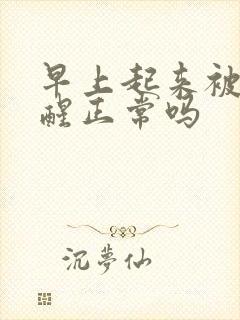 早上起来被
醒正常吗
沉夢仙